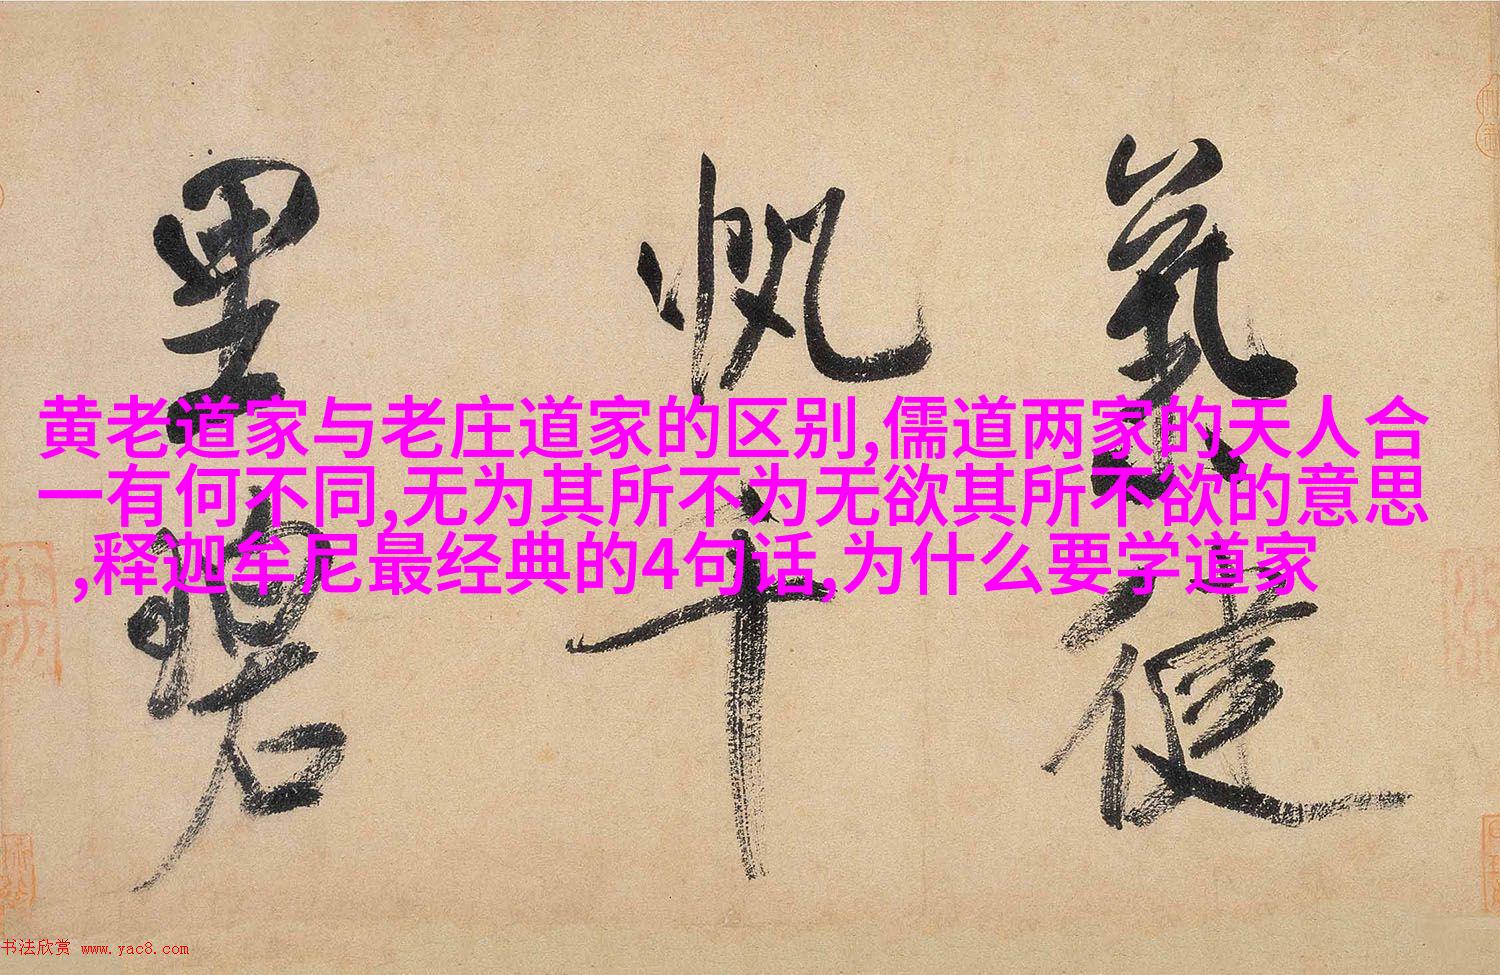 氣健
帆十
里碧
黄老道家与老庄道家的区别,儒道两家的天人合
一有何不同,无为其所不为无欲其所不欲的意思
,释迦牟尼最经典的4句话,为什么要学道家
书法欣赏 www.yac8.com